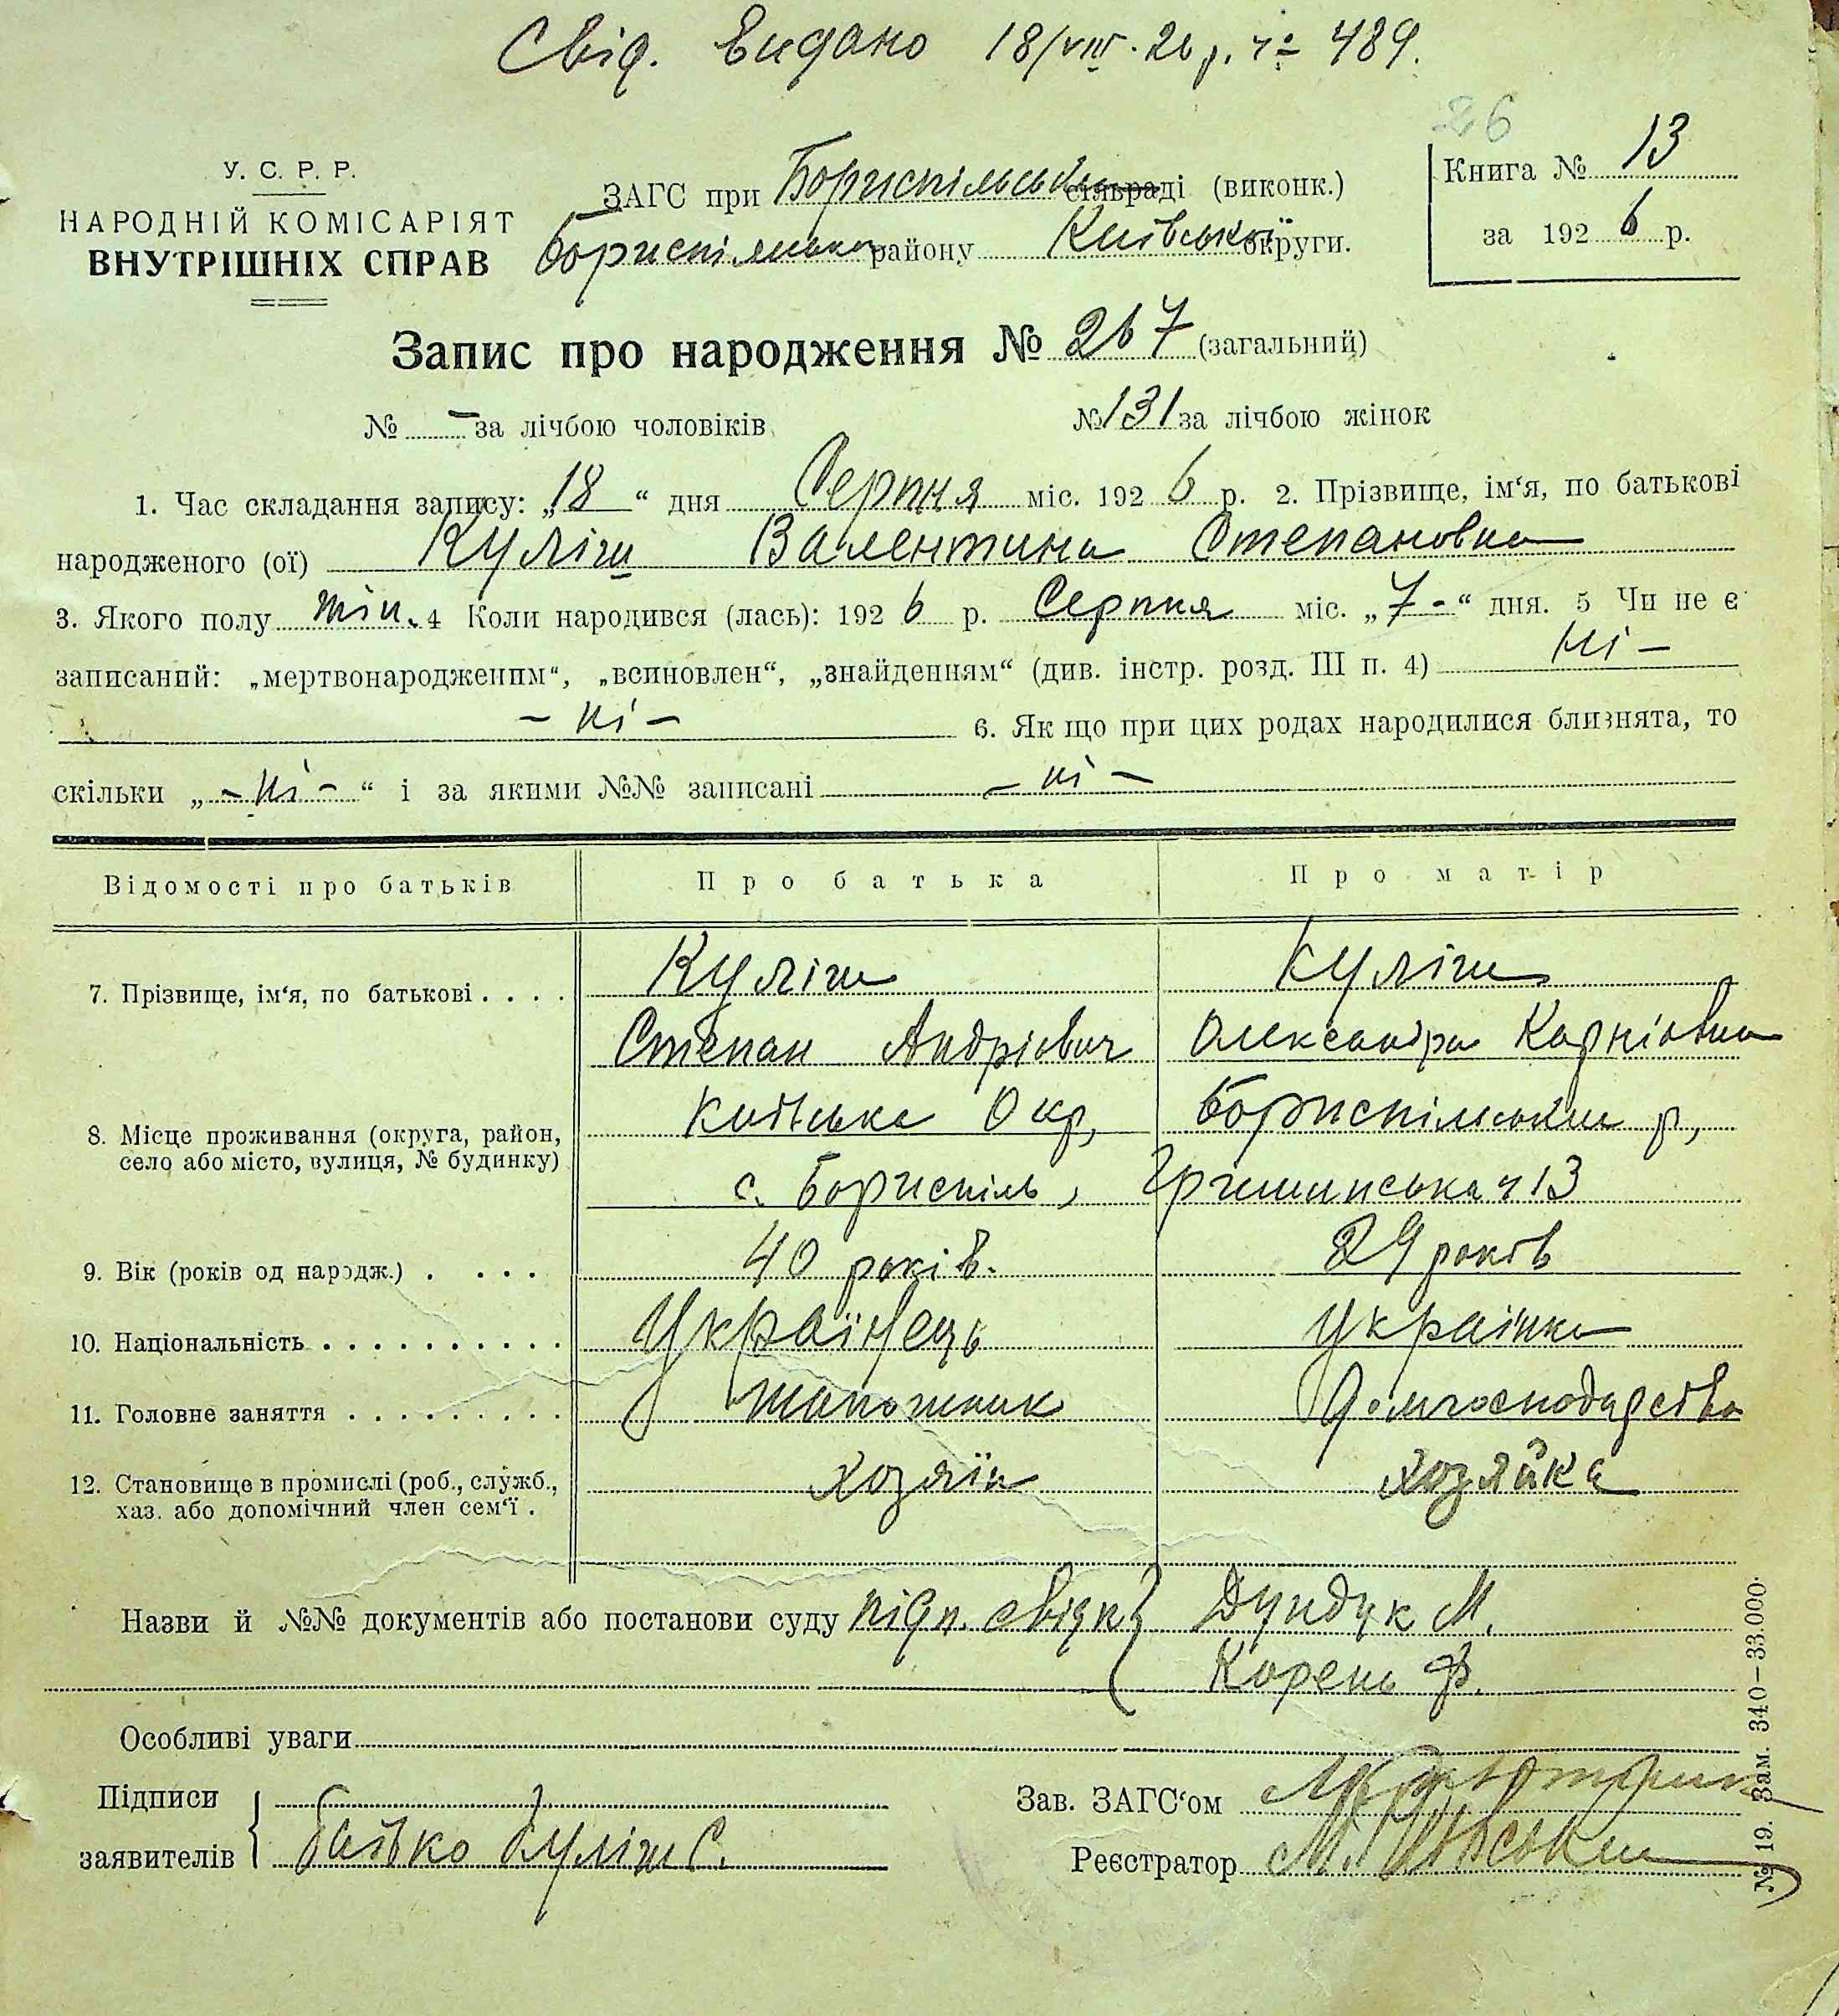 Свід. Видано 18/VIII. 26 р. ч= 489.
26
У. С. Р. Р.
НАРОДНІЙ КОМІСАРІЯТ
ВНУТРІШНІХ СПРАВ
ЗАГС при Бориспільськім сільраді (виконк.)
Бориспільського району Київської округи.
Книга № 13
за 1926 р.
Запис про народження № 267 (загальний)
№ – за лічбою чоловіків № 131 за лічбою жінок
1. Час складання запису: „18“ дня Серпня міс. 1926 р. 2. Прізвище, ім‘я, по батькові
народженого (ої) Куліш Валентина Степановна
3. Якого полу жін. 4 Коли народився (лась): 1926 р. Серпня міс. „7-“ дня. 5 Чи не є
записаний: „мертвонародженим“, „всиновлен“, „знайденням“ (див. інстр. розд. III п. 4) ні –
– ні – 6. Як що при цих родах народилися близнята, то
скільки „– ні –“ і за якими №№ записані – ні –
Відомості про батьків Про батька Про матір
7. Прізвище, ім‘я, по батькові . . . . Куліш Куліш
Степан Андрієвич Олександра Карпіовна
8. Місце проживання (округа, район, Київська Окр, Бориспільський р,
село або місто, вулиця, № будинку) с. Бориспіль, Гришинська ч 13
9. Вік (років од народж.) . . . . 40 років. 29 років
10. Національність . . . . . . . . . . Українець Українка
11. Головне заняття . . . . . . . . . Шапошник Домгосподарство
12. Становище в промислі (роб., служб., хозяїн хозяйка
хаз. або допомічний член сем‘ї .
Назви й №№ документів або постанови суду підп. свідк} Дундук М.
Корень Ф.
Особливі уваги
Підписи
заявителів { батько Куліш С.
Зав. ЗАГС‘ом
Реєстратор
№ 19. Зам. 340–33.000.